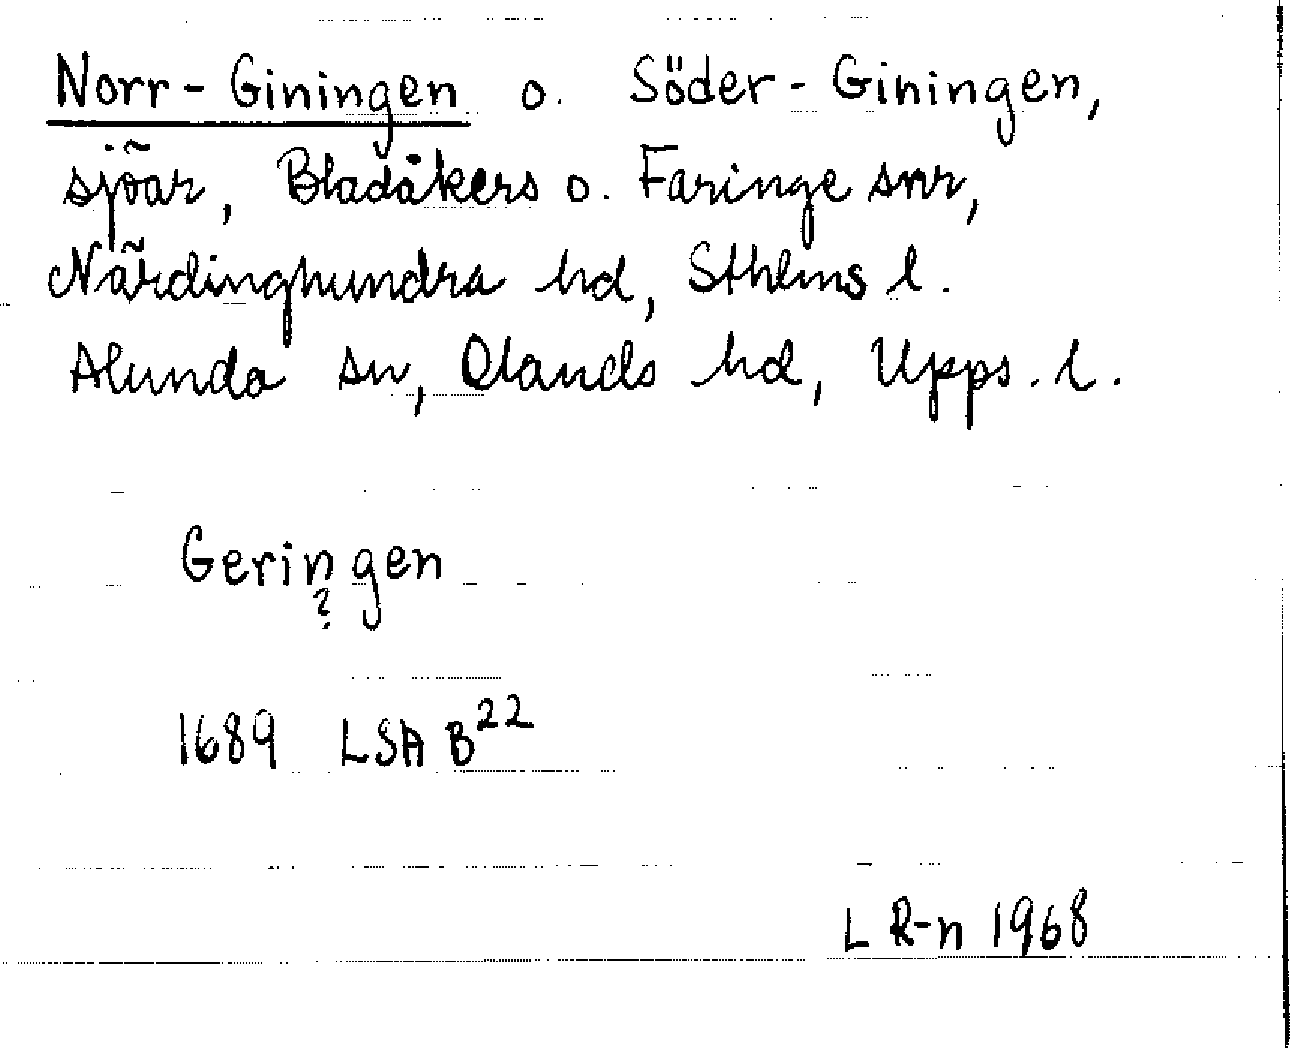 Norr-Giningen o. Söder-Giningen,
sjöar, Bladåkers o. Faringe snr,
Närdinghundra hd, Sthlms l.
Alunda sn, Olands hd, Upps. l.
Geringen
?
1689 LSA B²²
L R-n 1968